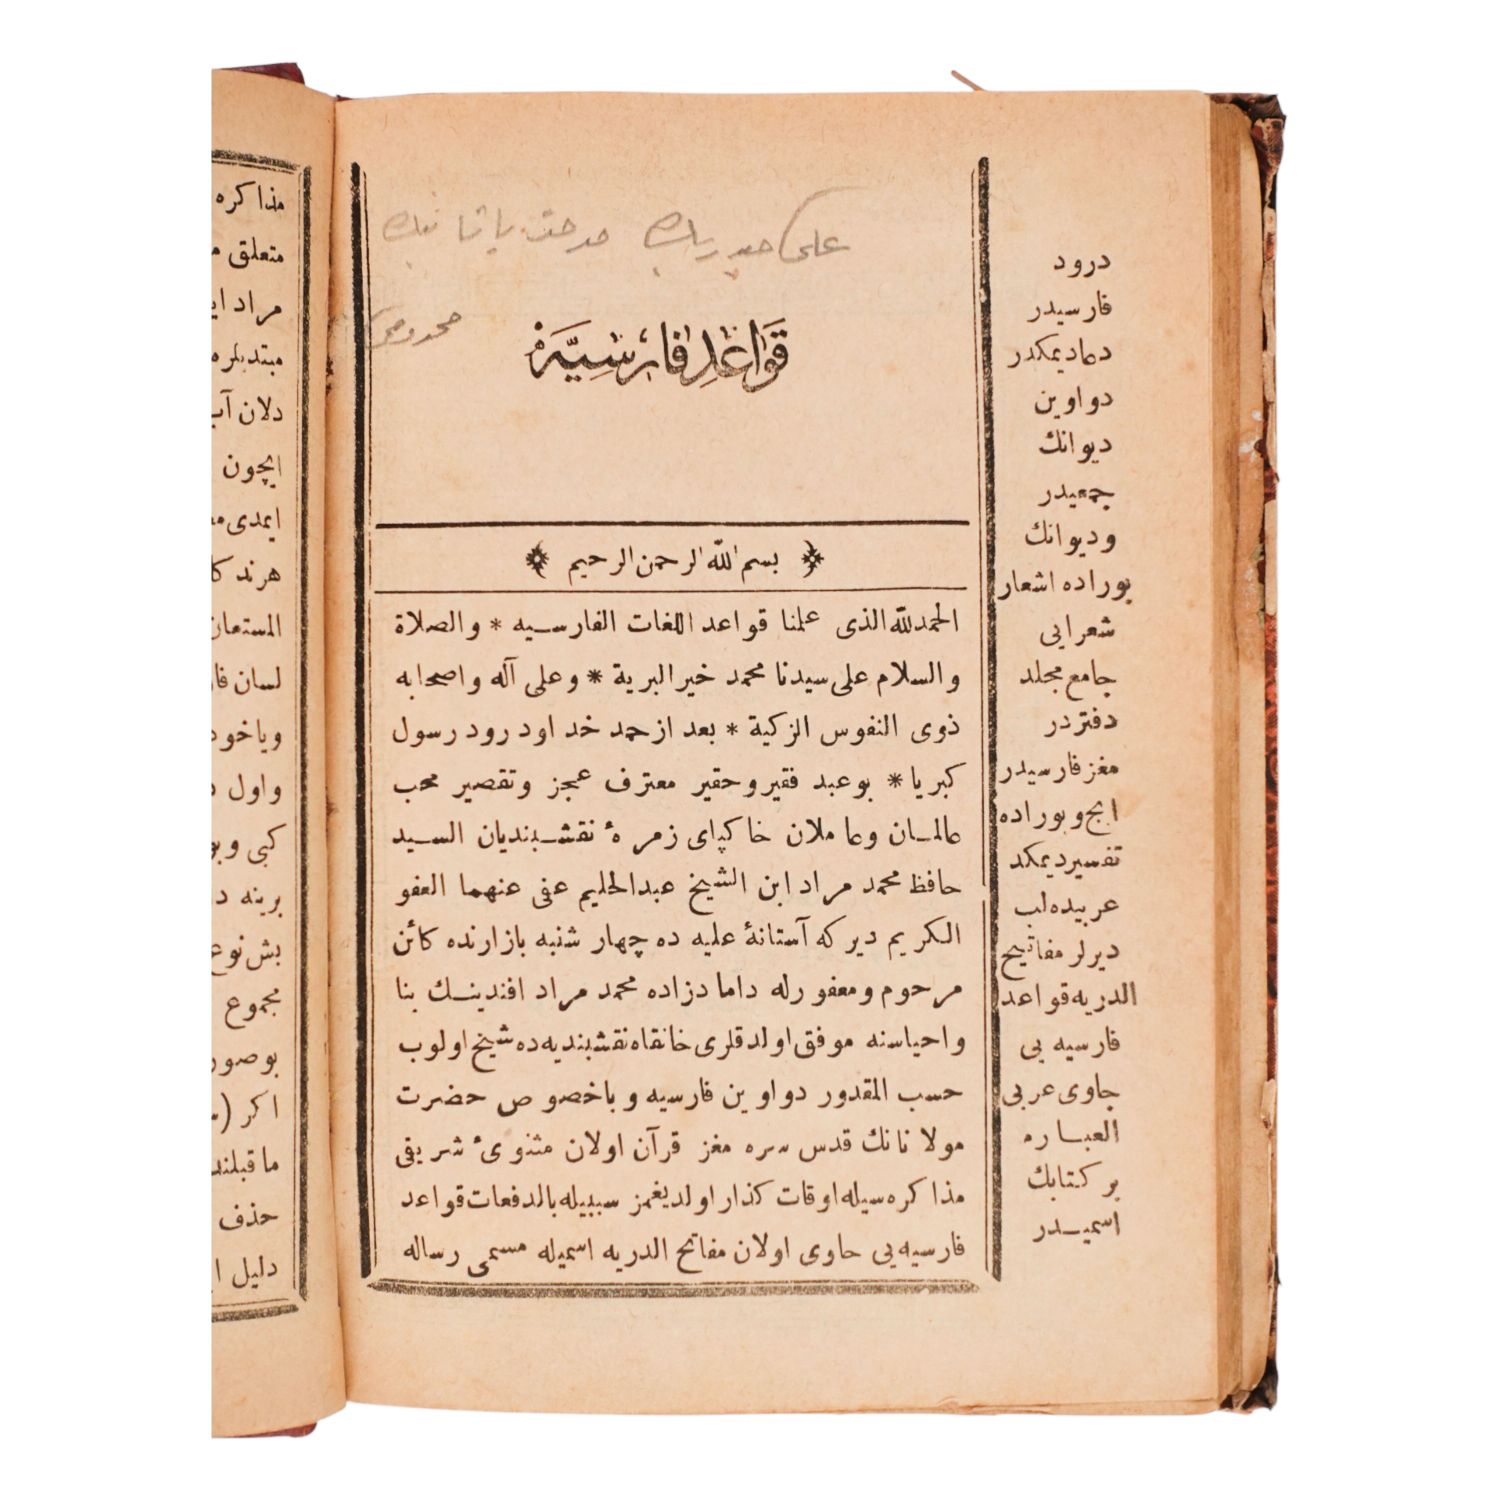 قواعد فارسیه
بسم الله الرحمن الرحیم
الحمدلله الذی علمنا قواعد اللغات الفارسیه * والصلاة
والسلام علی سیدنا محمد خیر البریة * وعلی آله واصحابه
ذوی النفوس الزکیة * بعد از حمد خدا ودرود رسول
کبریا * بو عبد فقیر وحقیر معترف عجز وتقصیر محب
عالمان وعاملان خاکپای زمرۀ نقشبندیان السید
حافظ محمد مراد ابن الشیخ عبدالحلیم عفی عنهما العفو
الکریم دیرکه آستانۀ علیه ده چهار شنبه بازارنده کائن
مرحوم ومغفورله داماد زاده محمد مراد افندینک بنا
واحیاسنه موفق اولدقلری خانقاه نقشبندیه ده شیخ اولوب
حسب المقدور دواوین فارسیه وباخصوص حضرت
مولانانک قدس سره مغز قرآن اولان مثنوئ شریفی
مذاکره سیله اوقات کذار اولدیغمز سببیله بالدفعات قواعد
فارسیه یی حاوی اولان مفاتح الدریه اسمیله مسمی رساله
درود
فارسیدر
دعا دیمکدر
دواوین
دیوانک
جمعیدر
ودیوانک
بوراده اشعار
شعرایی
جامع مجلد
دفتردر
مغز فارسیدر
ایچ وبوراده
تفسیر دیمکد
عربیده لب
دیرلر مفاتیح
الدریه قواعد
فارسیه یی
حاوی عربی
العباره
بر کتابک
اسمیدر
مذاکره
متعلق
مراد
مبتدیلره
دلان
ایچون
ایمدی
هرند
المستعان
لسان
ویاخود
واول
کبی
برینه
بش نوع
مجموع
بوصور
اکر
ماقبلند
حذف
دلیل